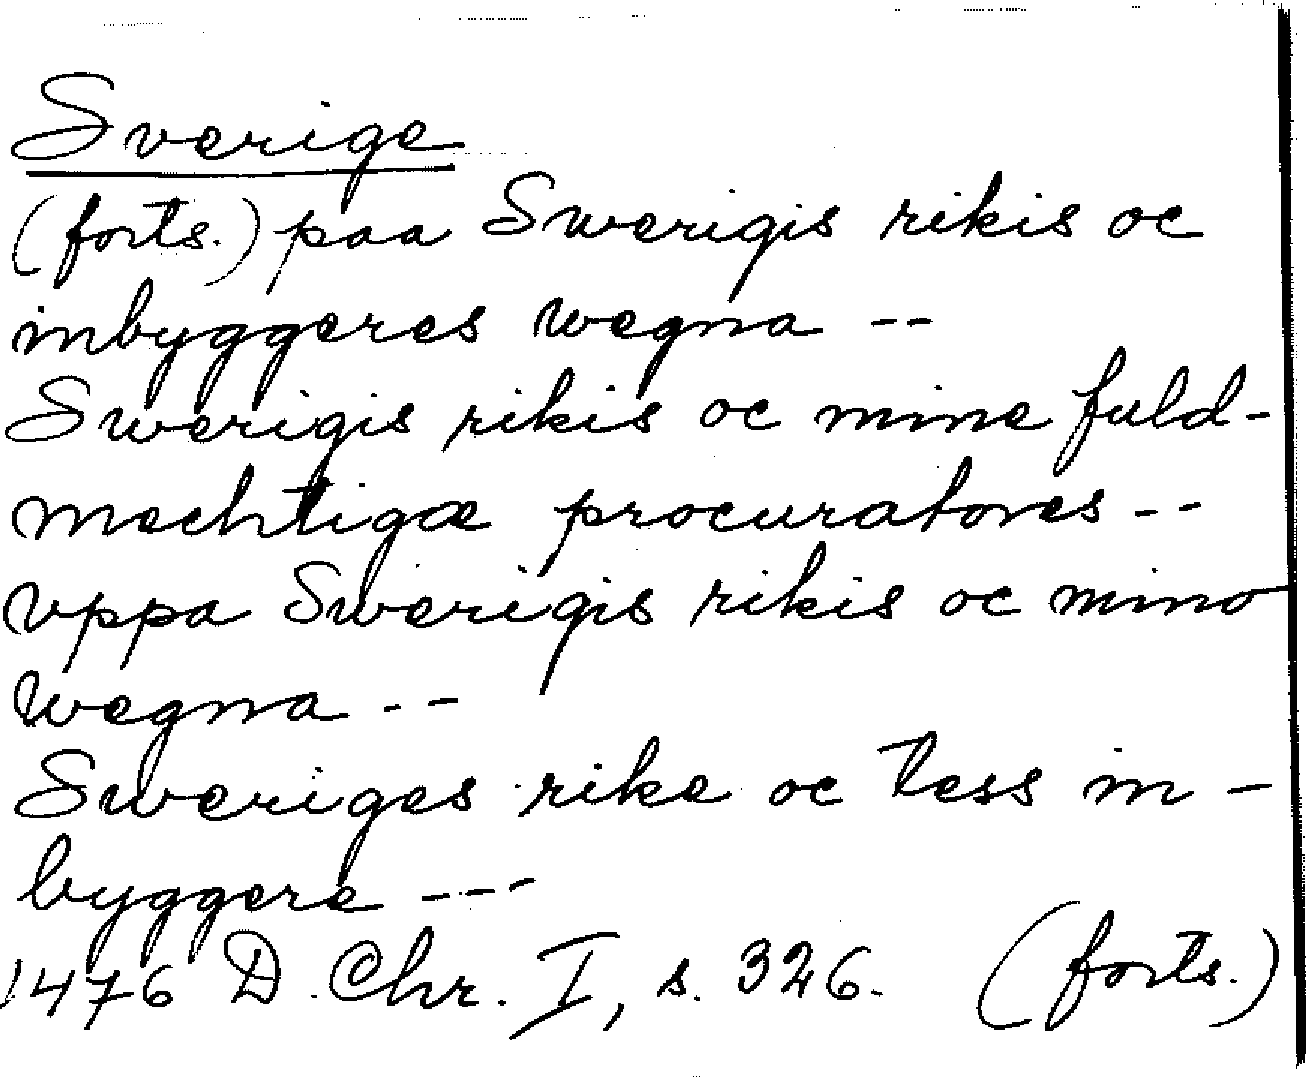 Sverige
(forts.) paa Swerigis rikis oc
inbyggeres wegna --
Swerigis rikis oc mine fuld-
mechtigæ procuratores --
vppa Swerigis rikis oc mino
wegna --
Sweriges rike oc tess in-
byggere ---
1476 D. Chr. I, s. 326. (forts.)